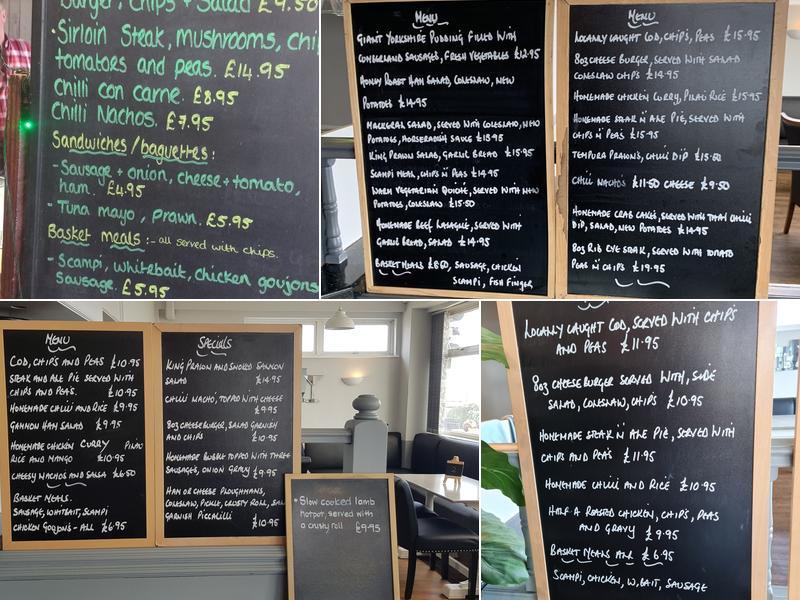 Burger, chips + Salad £9.50
· Sirloin Steak, mushrooms, chi
tomatoes and peas. £14.95
Chilli con carne. £8.95
Chilli Nachos. £7.95
Sandwiches/baguettes:
- Sausage + onion, cheese + tomato,
ham. £4.95
- Tuna mayo, prawn. £5.95
Basket meals :- all served with chips.
- Scampi, whitebait, chicken goujons
Sausage. £5.95
MENU
GIANT YORKSHIRE PUDDING FILLED WITH
CUMBERLAND SAUSAGES, FRESH VEGETABLES £12.95
HONEY ROAST HAM SALAD, COLESLAW, NEW
POTATOES £14.95
MACKERAL SALAD, SERVED WITH COLESLAW, NEW
POTATOES, HORSERADISH SAUCE £15.95
KING PRAWN SALAD, GARLIC BREAD £15.95
SCAMPI MEAL, CHIPS N PEAS £14.95
WARM VEGETARIAN QUICHE, SERVED WITH NEW
POTATOES, COLESLAW £15.50
HOMEMADE BEEF LASAGNE, SERVED WITH
GARLIC BREAD, SALAD £14.95
BASKET MEALS £8.50, SAUSAGE, CHICKEN
SCAMPI, FISH FINGER
MENU
LOCALLY CAUGHT COD, CHIPS, PEAS £15.95
8oz CHEESE BURGER, SERVED WITH SALAD
COLESLAW CHIPS £14.95
HOMEMADE CHICKEN CURRY, PILAU RICE £15.95
HOMEMADE STEAK N ALE PIE, SERVED WITH
CHIPS N PEAS £15.95
TEMPURA PRAWNS, CHILLI DIP £15.50
CHILLI NACHOS £11.50 CHEESE £9.50
HOMEMADE CRAB CAKES, SERVED WITH THAI CHILLI
DIP, SALAD, NEW POTATOES £14.95
8oz RIB EYE STEAK, SERVED WITH TOMATO
PEAS N CHIPS £19.95
MENU
COD, CHIPS AND PEAS £10.95
STEAK AND ALE PIE SERVED WITH
CHIPS AND PEAS. £10.95
HOMEMADE CHILLI AND RICE £9.95
GAMMON HAM SALAD £9.95
HOMEMADE CHICKEN CURRY PILAU
RICE AND MANGO £10.95
CHEESY NACHOS AND SALSA £6.50
BASKET MEALS.
SAUSAGE, WHITBAIT, SCAMPI
CHICKEN GOUJONS - ALL £6.95
SPECIALS
KING PRAWN AND SMOKED SALMON
SALAD £14.95
CHILLI NACHO, TOPPED WITH CHEESE
£9.95
8oz CHEESEBURGER, SALAD GARNISH
AND CHIPS £10.95
HOMEMADE BUBBLE TOPPED WITH THREE
SAUSAGES, ONION GRAVY £9.95
HAM OR CHEESE PLOUGHMANS,
COLESLAW, PICKLE, CRUSTY ROLL, SAL
GARNISH PICCALILLI £10.95
· Slow cooked lamb
hotpot, served with
a crusty roll £9.95
LOCALLY CAUGHT COD, SERVED WITH CHIPS
AND PEAS £11.95
8oz CHEESE BURGER SERVED WITH, SIDE
SALAD, COLESLAW, CHIPS £10.95
HOMEMADE STEAK N ALE PIE, SERVED WITH
CHIPS AND PEAS £11.95
HOMEMADE CHILLI AND RICE £10.95
HALF A ROASTED CHICKEN, CHIPS, PEAS
AND GRAVY £9.95
BASKET MEALS ALL £6.95
SCAMPI, CHICKEN, W,BAIT, SAUSAGE